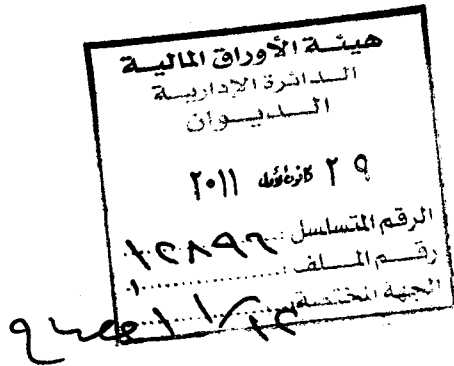 هيئة الأوراق المالية
الدائرة الإدارية
الديوان
٢٩ كانون الأول ٢٠١١
الرقم المتسلسل : ١٢٨٩٦
رقم الملف : ١
الجهة المختصة :